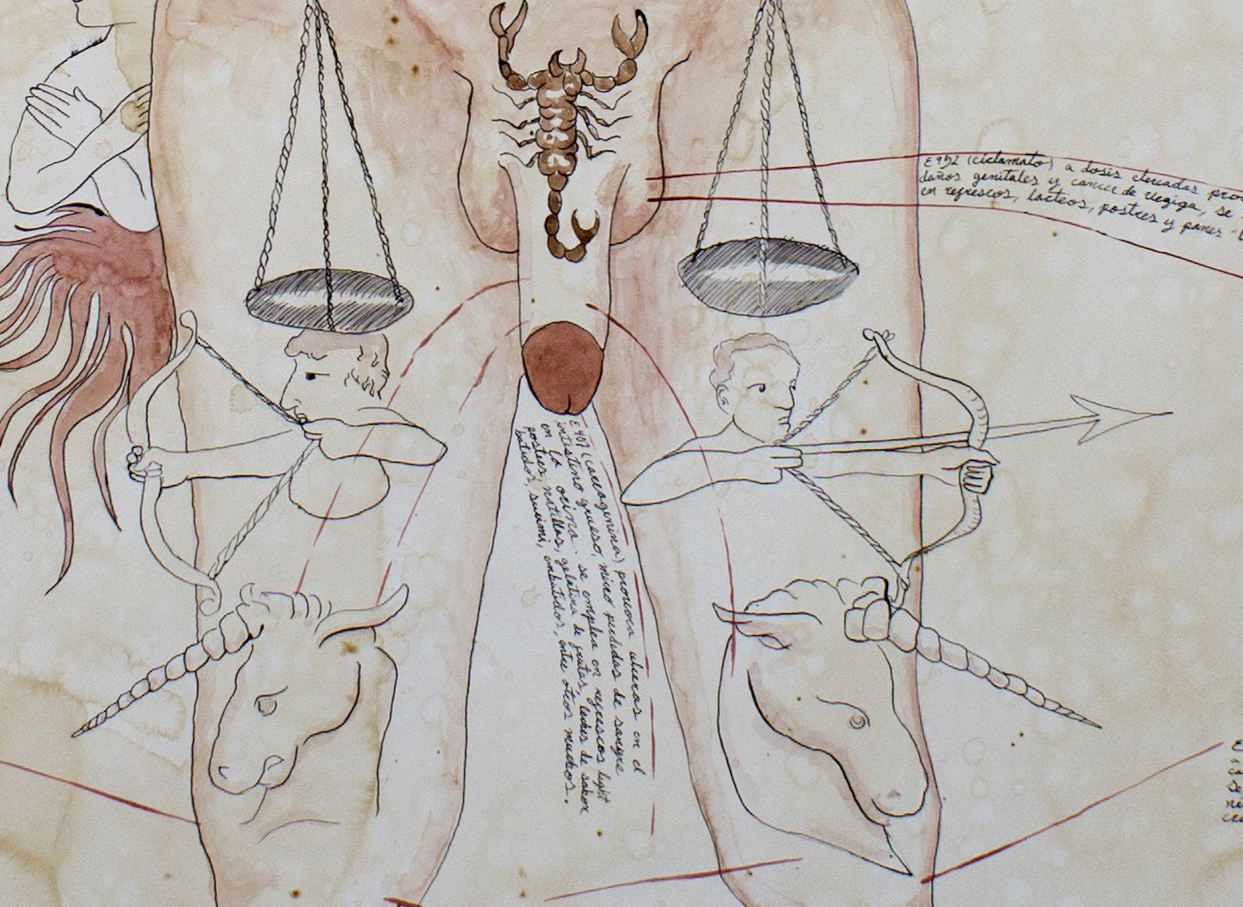 E 952 (ciclamato) a dosis elevadas pro
daños genitales y cancer de vegiga, se
en refrescos, lacteos, postres y panes -
E 407 (carragenina) provoca ulceras en el
intestino grueso, micro perdidas de sangre
en la orina - se emplea en refrescos light
postres, natillas, gelatina de frutas, leches de sabor
batidos, surimi, embutidos, entre otros muchos.